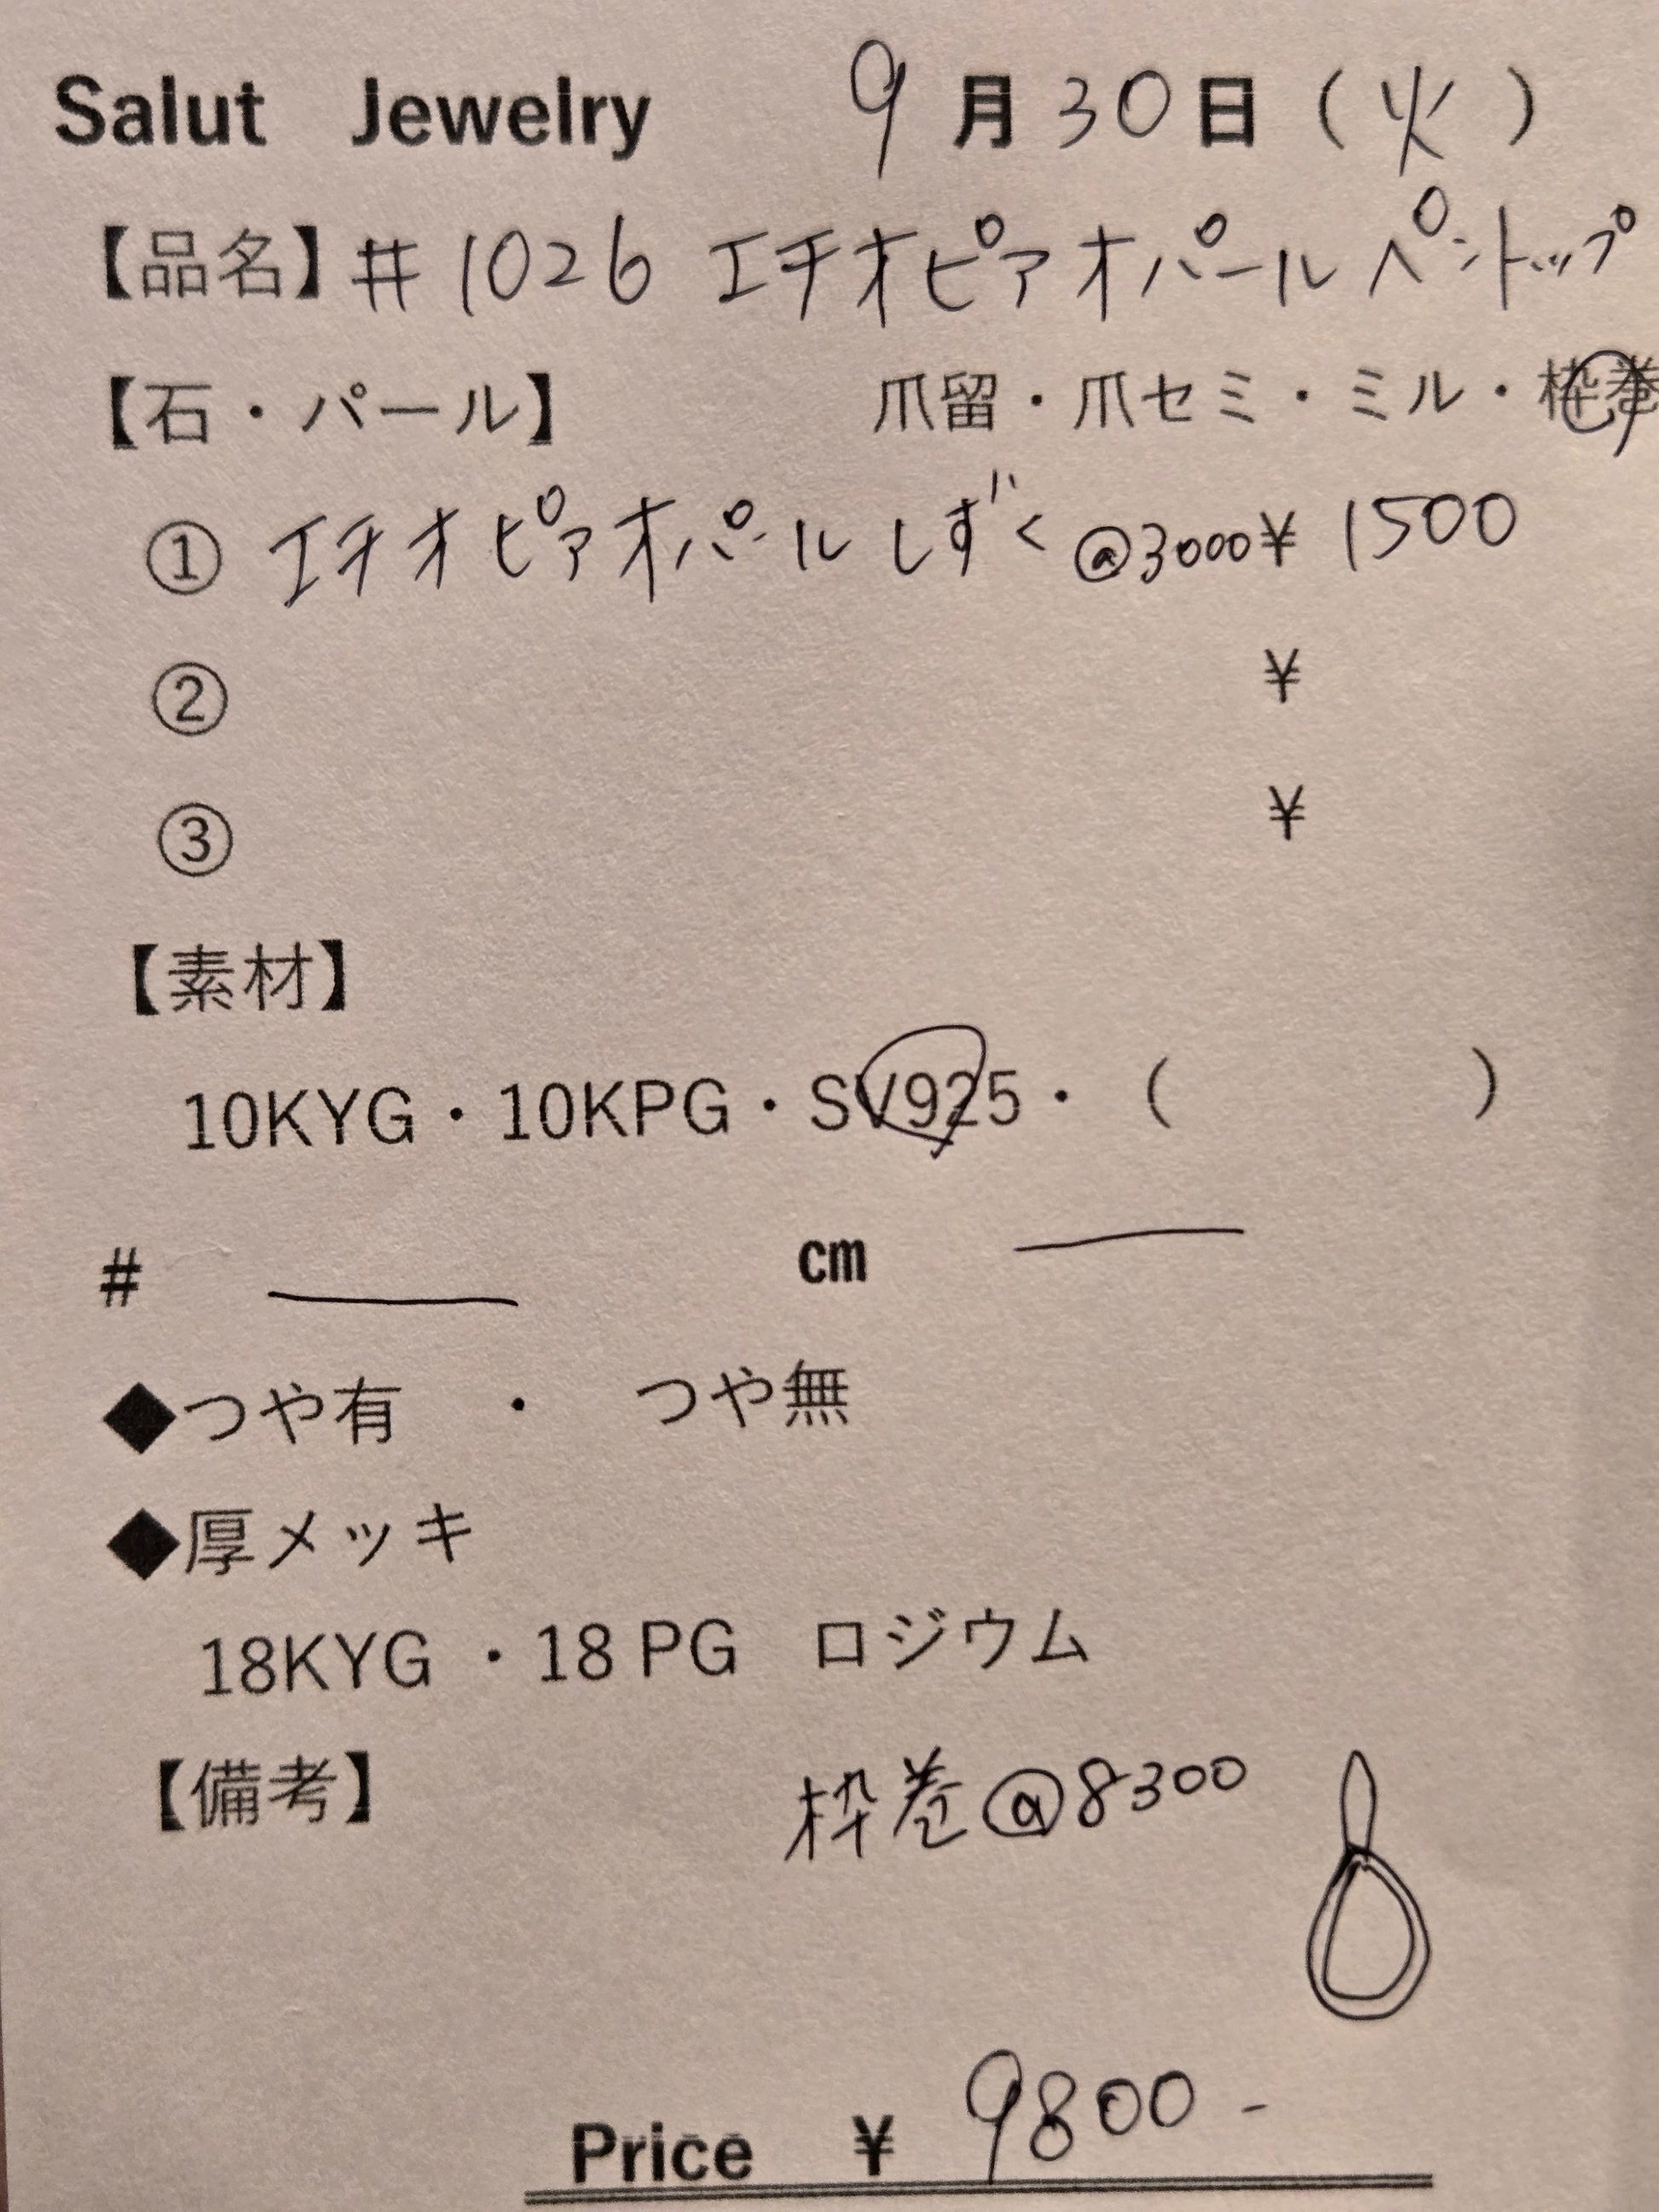 Salut Jewelry 9月30日(火)
【品名】#1026 エチオピアオパールペントップ
【石・パール】 爪留・爪セミ・ミル・枠巻
① エチオピアオパールしずく @3000¥ 1500
② ¥
③ ¥
【素材】
10KYG・10KPG・SV925・( )
# cm
◆つや有 ・ つや無
◆厚メッキ
18KYG ・18 PG ロジウム
【備考】 枠巻@8300
Price ¥ 9800-